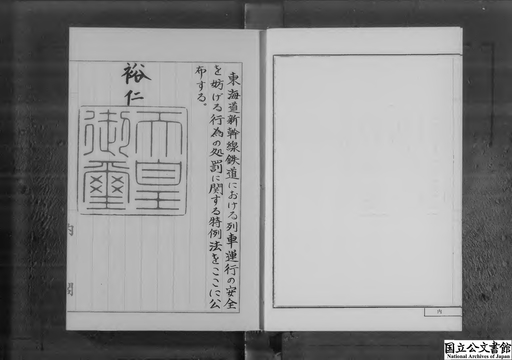 東海道新幹線鉄道における列車運行の安全
を妨げる行為の処罰に関する特例法をここに公
布する。
裕仁
天皇
御璽
内
閣
内
国立公文書館
National Archives of Japan